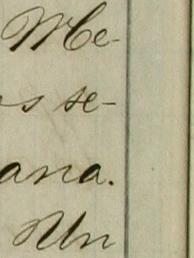 Me-
s se-
ana.
Un